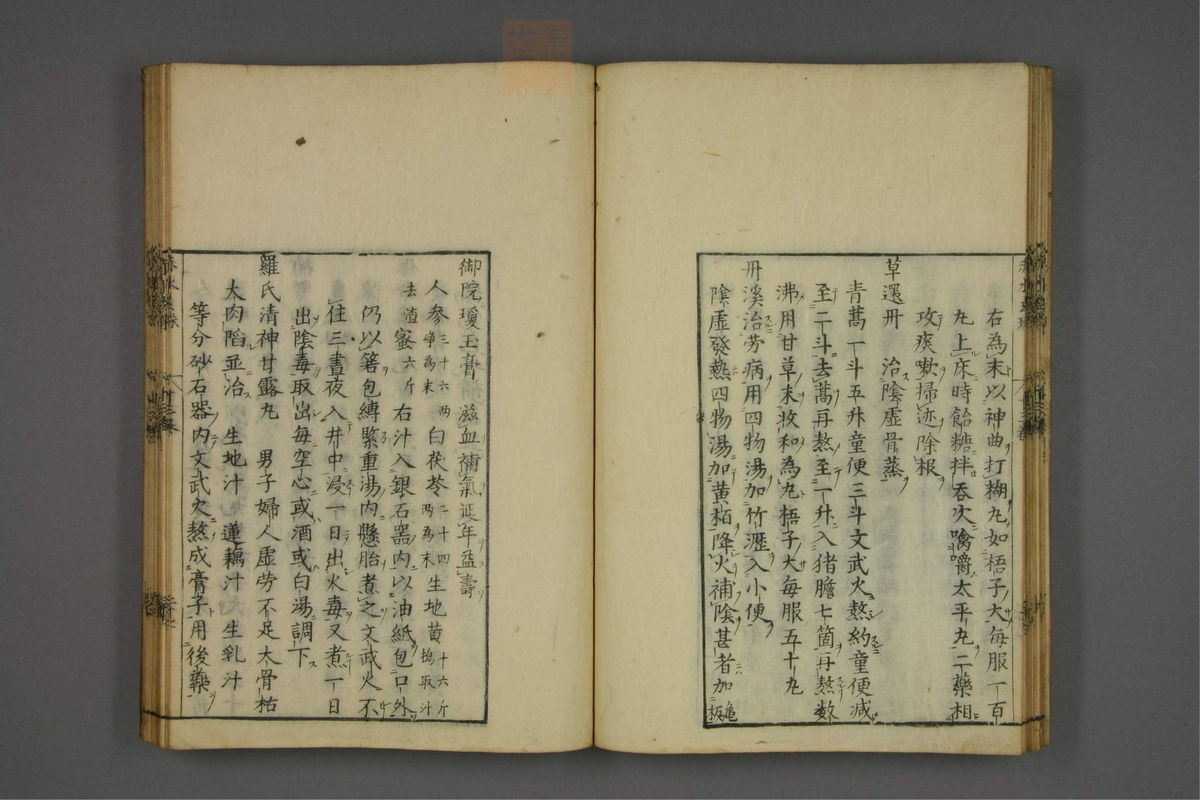 右為末以神曲打糊丸如梧子大每服一百
丸上床時飴糖拌吞次噙嚼太平丸二藥相
攻痰嗽掃迹除根
草還丹　治陰虛骨蒸
青蒿一斗五升童便三斗文武火熬約童便減
至二斗去蒿再熬至一升入猪膽七箇再熬數
沸用甘草末收和為丸梧子大每服五十丸
丹溪治劳病用四物湯加竹瀝入小便
陰虛發熱四物湯加黄栢降火補陰甚者加龜板
御院瓊玉膏　滋血補氣延年益壽
人參三十六两爭為末白茯苓二十四两為末生地黄十六斤搗取汁
去渣蜜六斤右汁入銀石器内以油紙包口外
仍以箬包縛緊重湯内懸胎煮之文武火不
住三晝夜入井中浸一日出火毒又煮一日
出陰毒取出每空心或酒或白湯調下
羅氏清神甘露丸　男子婦人虛劳不足大骨枯
大肉陷並治　生地汁　蓮藕汁　生乳汁
等分砂石器内文武火熬成膏子用後藥